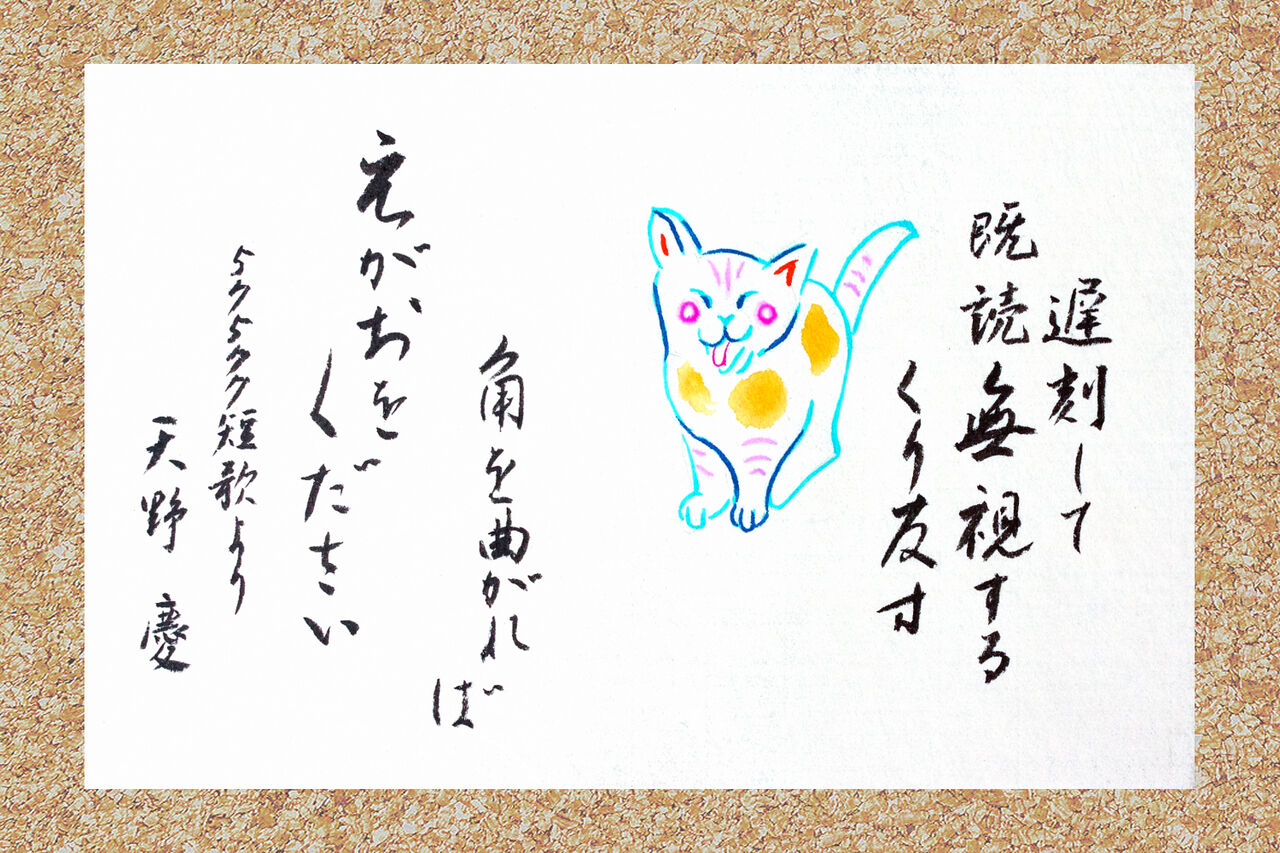 遅刻して
既読無視する
くり返す
角を曲がれ
ば
えがおを
ください
57577短歌より
天野 慶